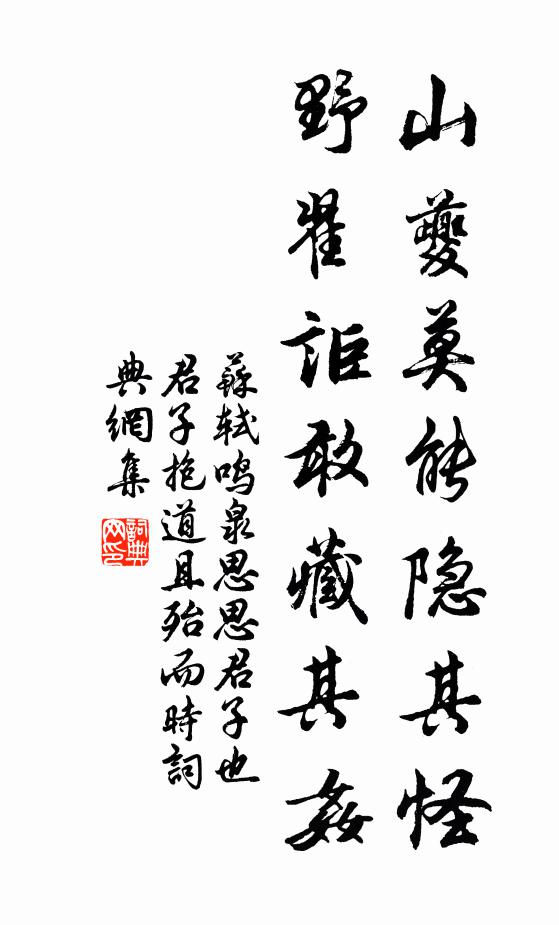 山夔莫能隐其怪
野翟詎敢藏其姦
蘇軾鸣泉思思君子也
君子抱道且殆而時詞
典網集
詞典
网印